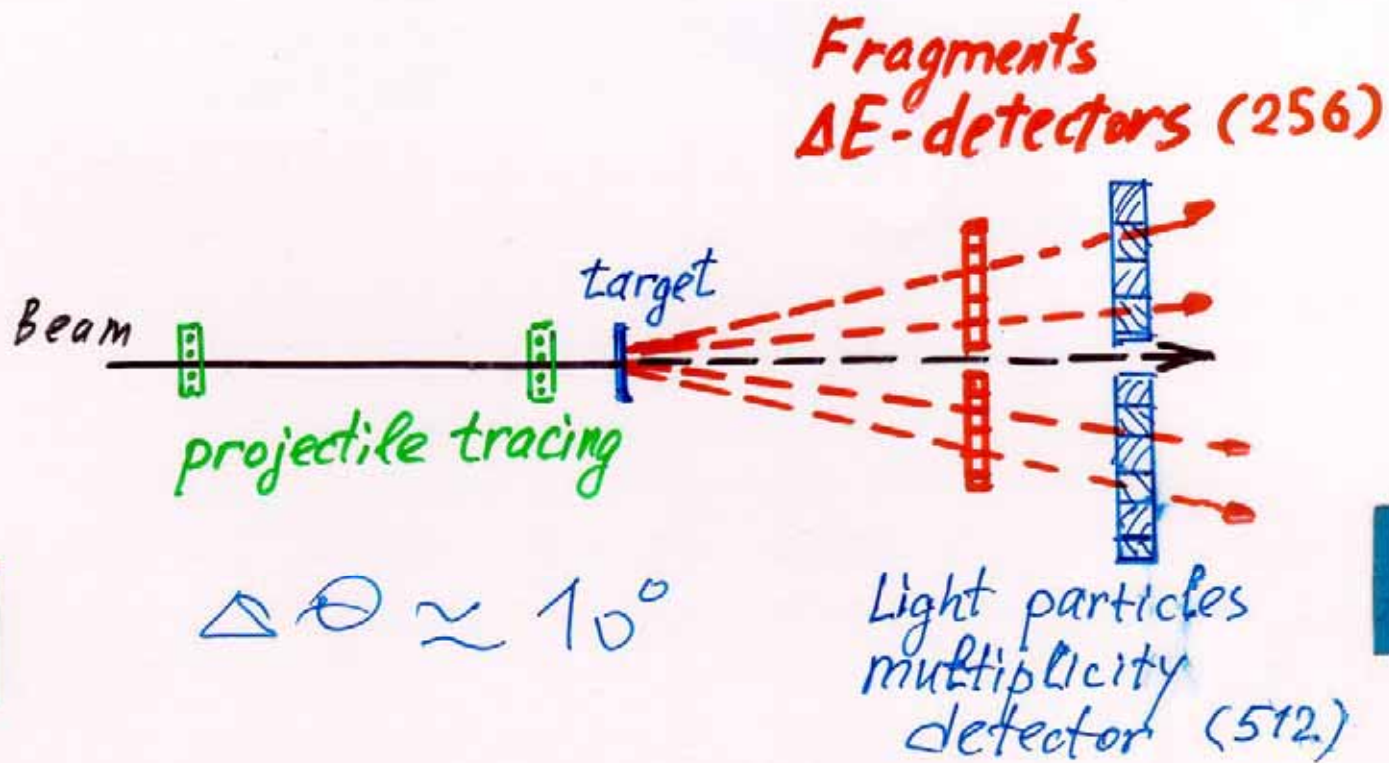 Fragments
ΔE-detectors (256)
target
Beam
projectile tracing
Δ Θ ≃ 10°
Light particles
multiplicity
detector (512)